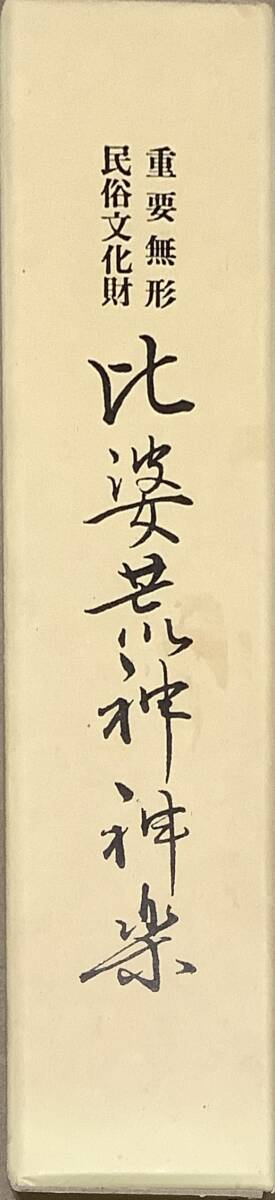 重要無形
民俗文化財
比婆荒神神楽